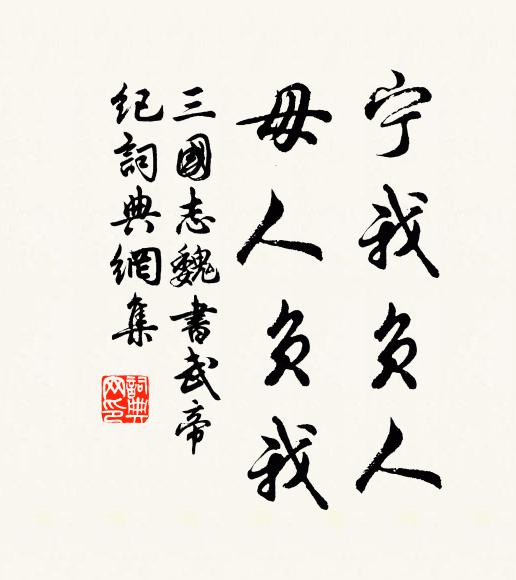 宁我负人
毋人负我
三國志魏書武帝
纪詞典網集
詞典网印